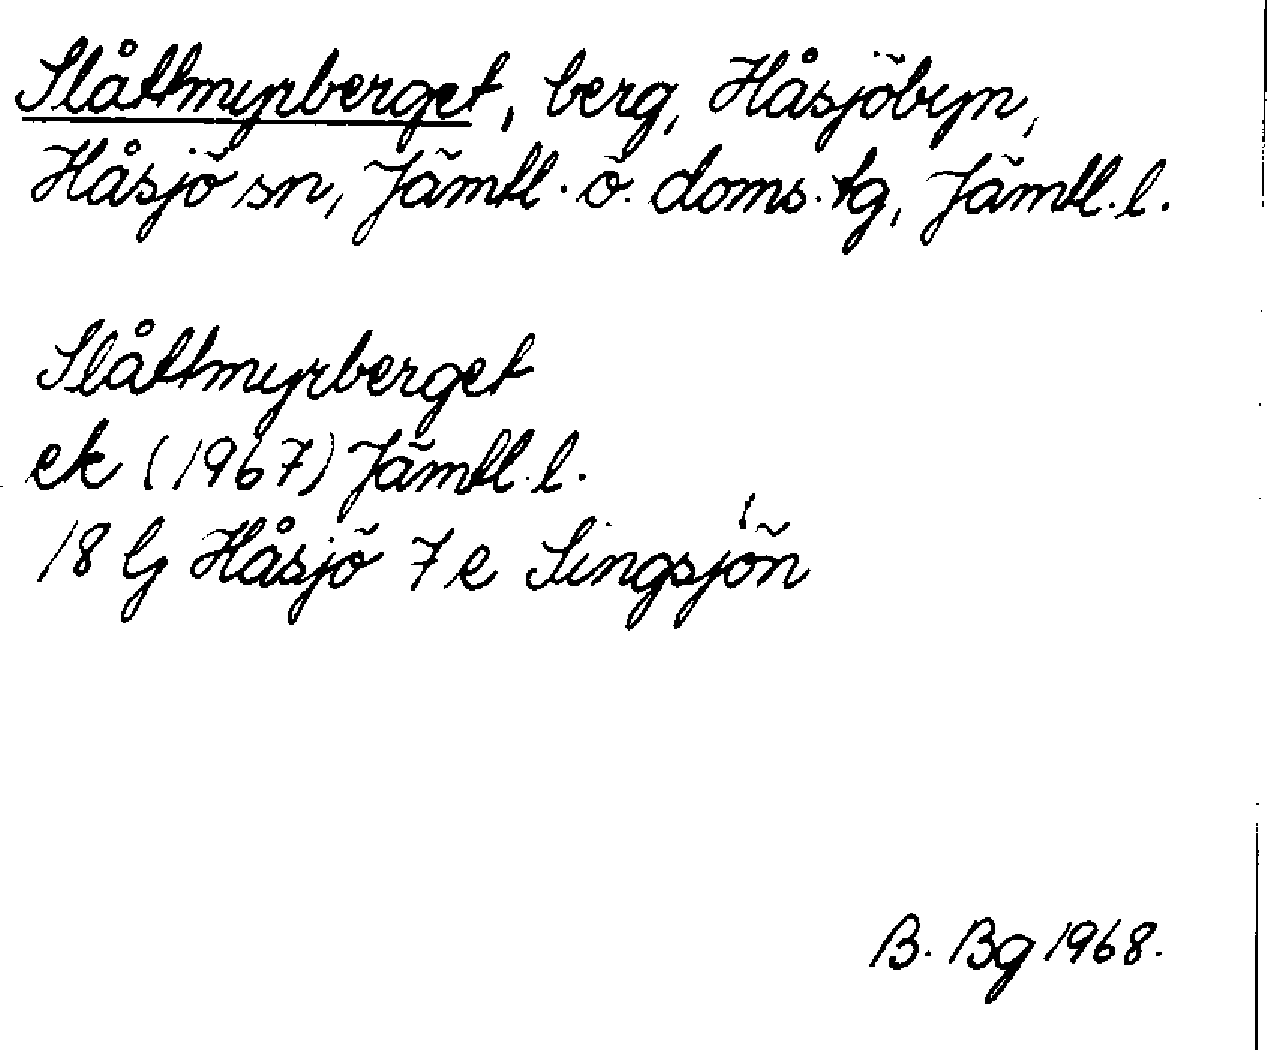 Slåttmyrberget, berg, Håsjöbyn,
Håsjö sn, Jämtl. ö. doms. tg, Jämtl. l.
Slåttmyrberget
ek (1967) Jämtl. l.
18 G Håsjö 7 e Singsjön
B. Bg 1968.